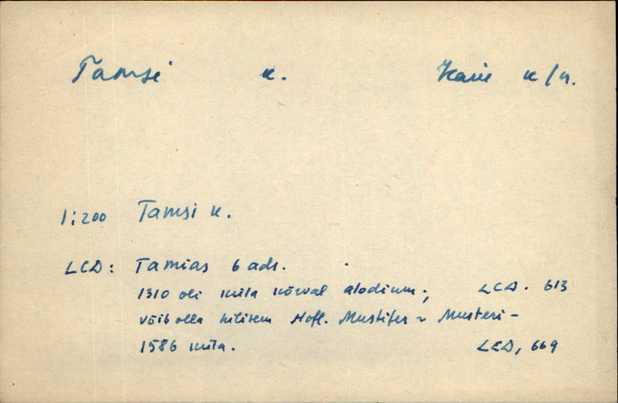 Tamsi k. Harie k/n.
1:200 Tamsi k.
LCD: Tamias 6 adr.
1310 oli küla kõrval alodium; LCD. 613
võib olla hilisem Hofl. Mustifer ~ Musteri-
1586 küla. LCD, 669